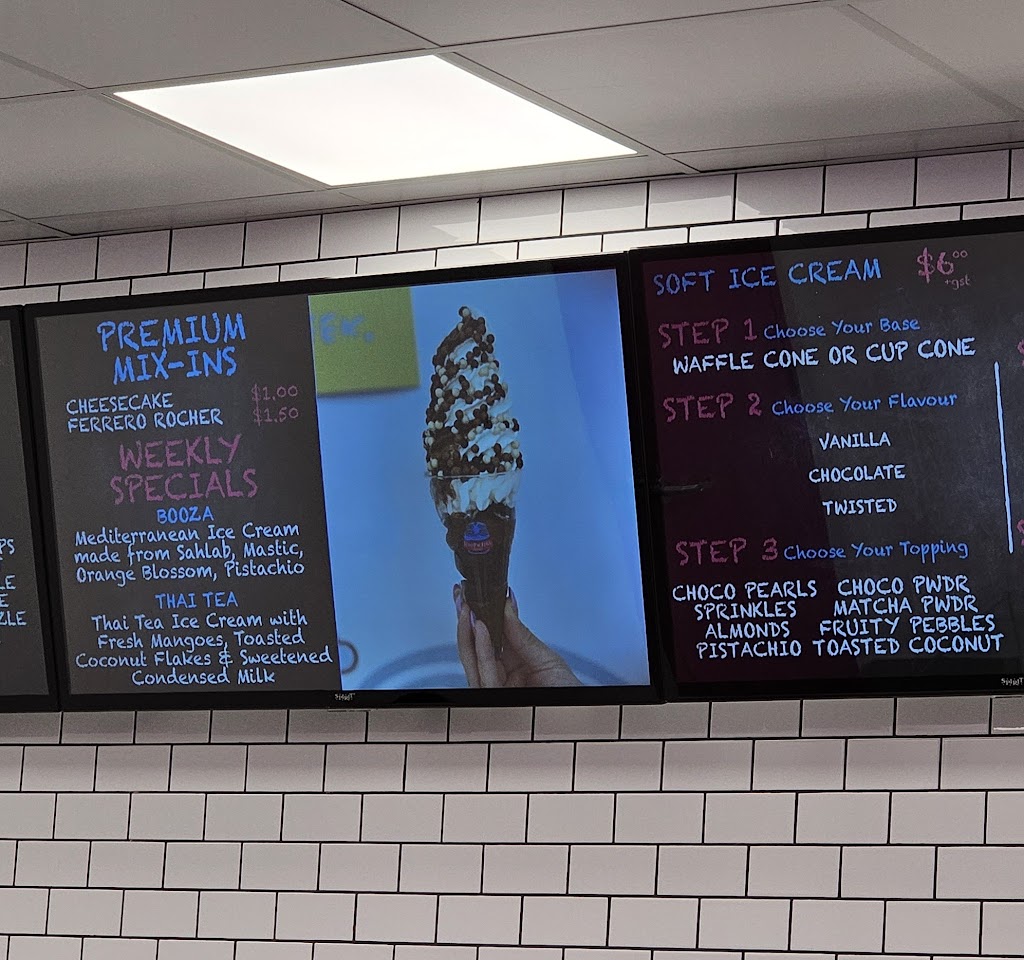 PREMIUM
MIX-INS
CHEESECAKE $1.00
FERRERO ROCHER $1.50
WEEKLY
SPECIALS
BOOZA
Mediterranean Ice Cream
made from Sahlab, Mastic,
Orange Blossom, Pistachio
THAI TEA
Thai Tea Ice Cream with
Fresh Mangoes, Toasted
Coconut Flakes & Sweetened
Condensed Milk
SOFT ICE CREAM $6.00
+gst
STEP 1 Choose Your Base
WAFFLE CONE OR CUP CONE
STEP 2 Choose Your Flavour
VANILLA
CHOCOLATE
TWISTED
STEP 3 Choose Your Topping
CHOCO PEARLS CHOCO PWDR
SPRINKLES MATCHA PWDR
ALMONDS FRUITY PEBBLES
PISTACHIO TOASTED COCONUT